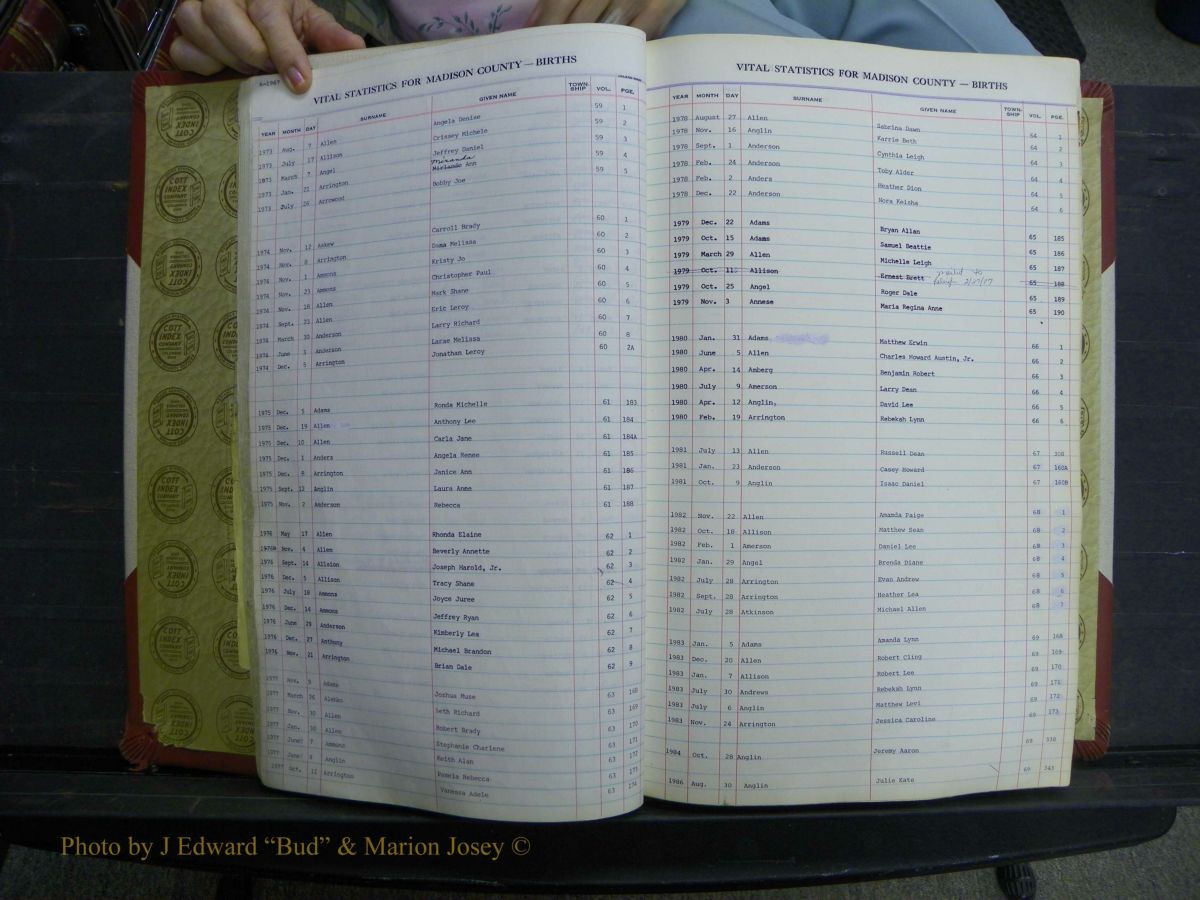 A-1967
VITAL STATISTICS FOR MADISON COUNTY — BIRTHS
YEAR MONTH DAY SURNAME GIVEN NAME TOWNSHIP VOL. PGE.
1973 Aug. 7 Allen Angela Denise 59 1
1973 July 17 Allison Crissey Michele 59 2
1973 March 7 Angel Jeffrey Daniel 59 3
1973 Jan. 21 Arrington Miranda Ann 59 4
1973 July 26 Arrowood Bobby Joe 59 5
1974 Nov. 12 Askew Carroll Brady 60 1
1974 Nov. 8 Arrington Dama Melissa 60 2
1974 Nov. 1 Ammons Kristy Jo 60 3
1974 Nov. 23 Ammons Christopher Paul 60 4
1974 Nov. 18 Allen Mark Shane 60 5
1974 Sept. 23 Allen Eric Leroy 60 6
1974 March 30 Anderson Larry Richard 60 7
1974 June 3 Anderson Larae Melissa 60 8
1974 Dec. 5 Arrington Jonathan Leroy 60 2A
1975 Dec. 5 Adams Ronda Michelle 61 183
1975 Dec. 19 Allen Anthony Lee 61 184
1975 Dec. 10 Allen Carla Jane 61 184A
1975 Dec. 1 Anders Angela Renee 61 185
1975 Dec. 8 Arrington Janice Ann 61 186
1975 Sept. 12 Anglin Laura Anne 61 187
1975 Nov. 2 Anderson Rebecca 61 188
1976 May 17 Allen Rhonda Elaine 62 1
1976 Nov. 4 Allen Beverly Annette 62 2
1976 Sept. 14 Allsion Joseph Harold, Jr. 62 3
1976 Dec. 5 Allison Tracy Shane 62 4
1976 July 18 Ammons Joyce Juree 62 5
1976 Dec. 14 Ammons Jeffrey Ryan 62 6
1976 June 29 Anderson Kimberly Lea 62 7
1976 Dec. 27 Anthony Michael Brandon 62 8
1976 Nov. 21 Arrington Brian Dale 62 9
1977 Nov. 9 Adams Joshua Muse 63 168
1977 March 26 Alenko Seth Richard 63 169
1977 Nov. 30 Allen Robert Brady 63 170
1977 Jan. 30 Allen Stephanie Charlene 63 171
1977 June 7 Ammons Keith Alan 63 172
1977 June 4 Anglin Pamela Rebecca 63 173
1977 Oct. 12 Arrington Vanessa Adele 63 174
VITAL STATISTICS FOR MADISON COUNTY — BIRTHS
YEAR MONTH DAY SURNAME GIVEN NAME TOWNSHIP VOL. PGE.
1978 August 27 Allen Sabrina Dawn 64 1
1978 Nov. 16 Anglin Karrie Beth 64 2
1978 Sept. 1 Anderson Cynthia Leigh 64 3
1978 Feb. 24 Anderson Toby Alder 64 4
1978 Feb. 2 Anders Heather Dion 64 5
1978 Dec. 22 Anderson Nora Keisha 64 6
1979 Dec. 22 Adams Bryan Allan 65 185
1979 Oct. 15 Adams Samuel Beattie 65 186
1979 March 29 Allen Michelle Leigh 65 187
1979 Oct. 11 Allison Ernest Brett 65 188
1979 Oct. 25 Angel Roger Dale 65 189
1979 Nov. 3 Annese Maria Regina Anne 65 190
1980 Jan. 31 Adams Matthew Erwin 66 1
1980 June 5 Allen Charles Howard Austin, Jr. 66 2
1980 Apr. 14 Amberg Benjamin Robert 66 3
1980 July 9 Amerson Larry Dean 66 4
1980 Apr. 12 Anglin, David Lee 66 5
1980 Feb. 19 Arrington Rebekah Lynn 66 6
1981 July 13 Allen Russell Dean 67 308
1981 Jan. 23 Anderson Casey Howard 67 160A
1981 Oct. 9 Anglin Isaac Daniel 67 160B
1982 Nov. 22 Allen Amanda Paige 68 1
1982 Oct. 18 Allison Matthew Sean 68 2
1982 Feb. 1 Amerson Daniel Lee 68 3
1982 Jan. 29 Angel Brenda Diane 68 4
1982 July 28 Arrington Evan Andrew 68 5
1982 Sept. 28 Arrington Heather Lea 68 6
1982 July 28 Atkinson Michael Allen 68 7
1983 Jan. 5 Adams Amanda Lynn 69 168
1983 Dec. 20 Allen Robert Cling 69 169
1983 Jan. 7 Allison Robert Lee 69 170
1983 July 30 Andrews Rebekah Lynn 69 171
1983 July 6 Anglin Matthew Levi 69 172
1983 Nov. 24 Arrington Jessica Caroline 69 173
1984 Oct. 28 Anglin Jeremy Aaron 69 338
1986 Aug. 30 Anglin Julie Kate 69 343
COTT INDEX COMPANY
Photo by J Edward “Bud” & Marion Josey ©